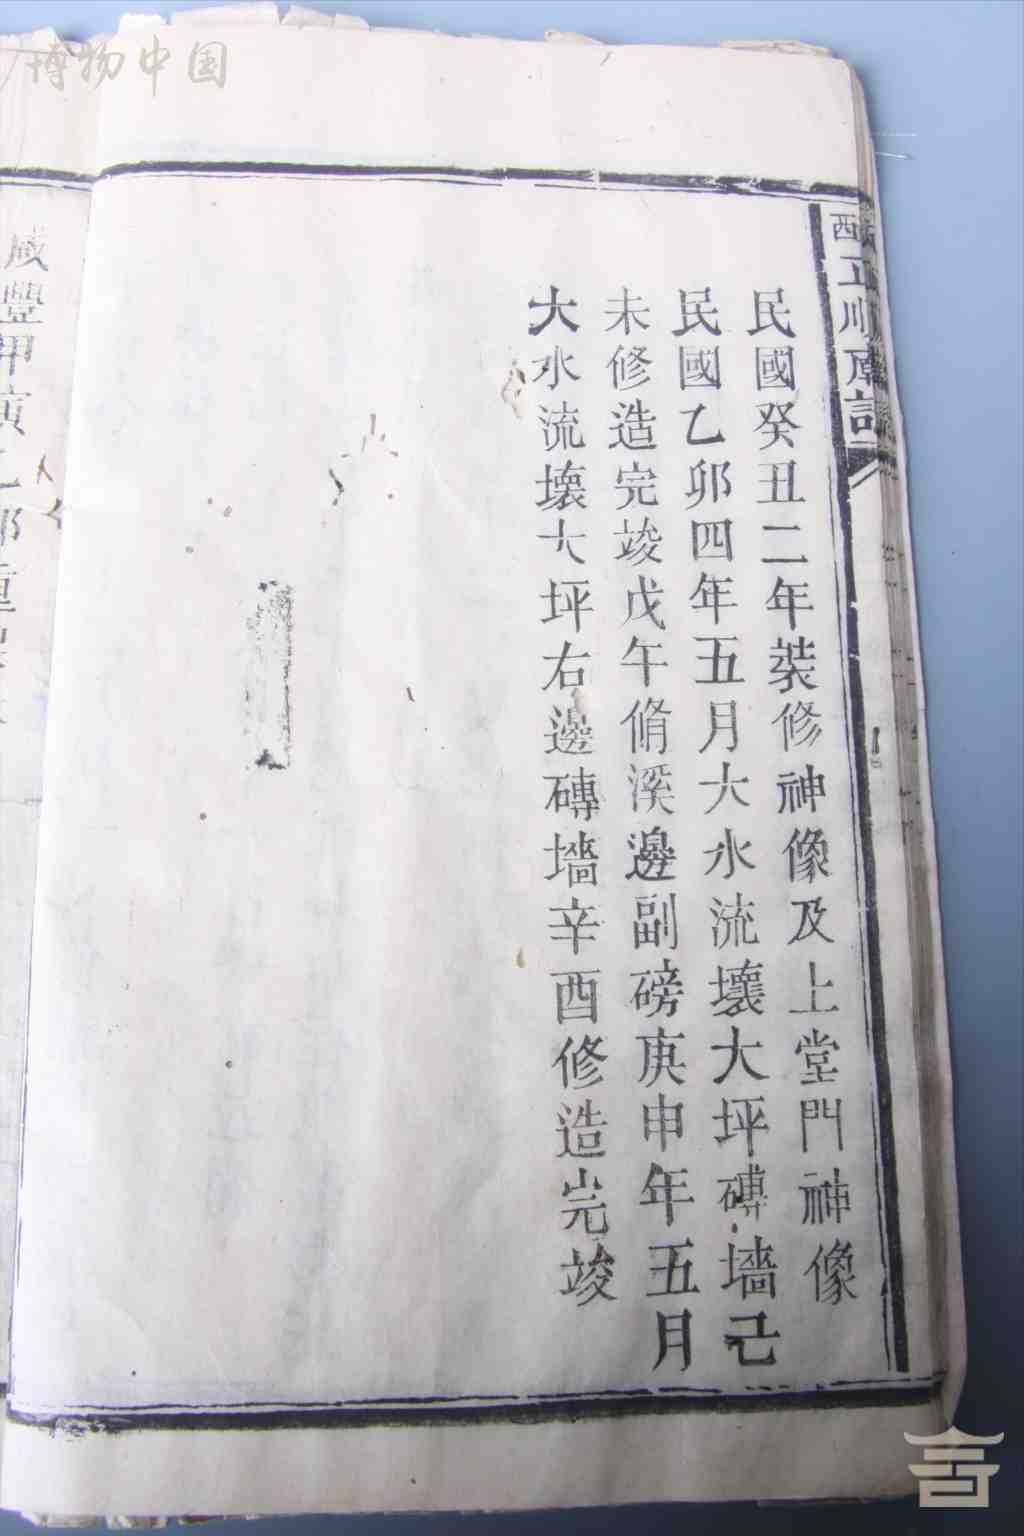 民國癸丑二年裝修神像及上堂門神像
民國乙卯四年五月大水流壞大坪磚墻己
未修造完竣戊午脩溪邊副磅庚申年五月
大水流壞大坪右邊磚墻辛酉修造完竣
咸豐甲寅乙卯重
博物中国